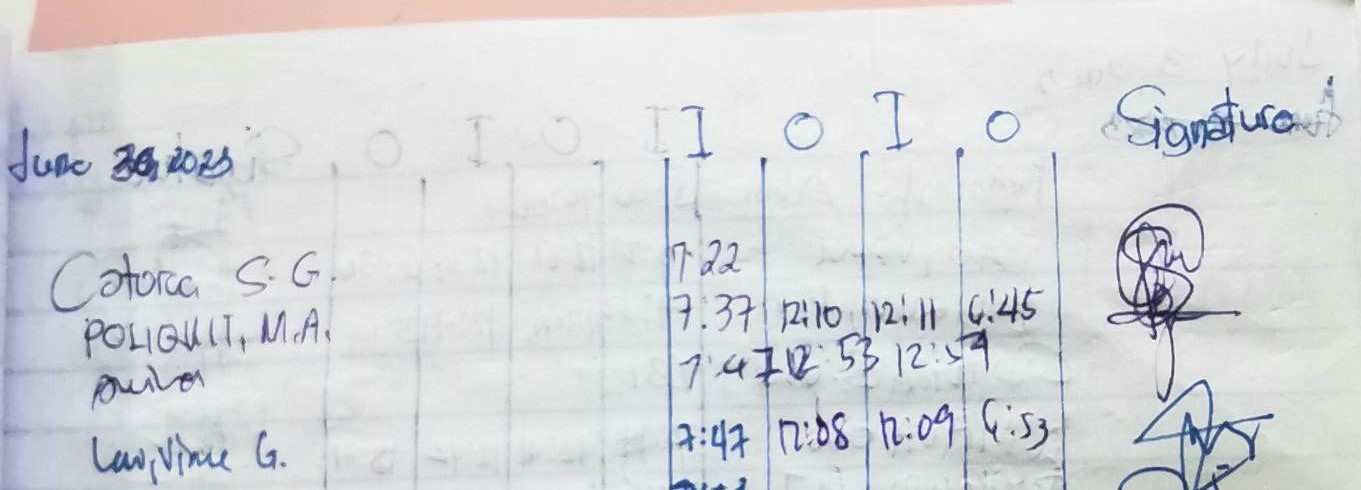 June 30, 2023 I O I O Signature
Catorca S. G. 7:22
POLIQUIT, M.A. 7:37 12:10 12:11 6:45
7:47 12:53 12:59
Law, Vinie G. 7:47 12:08 12:09 6:53